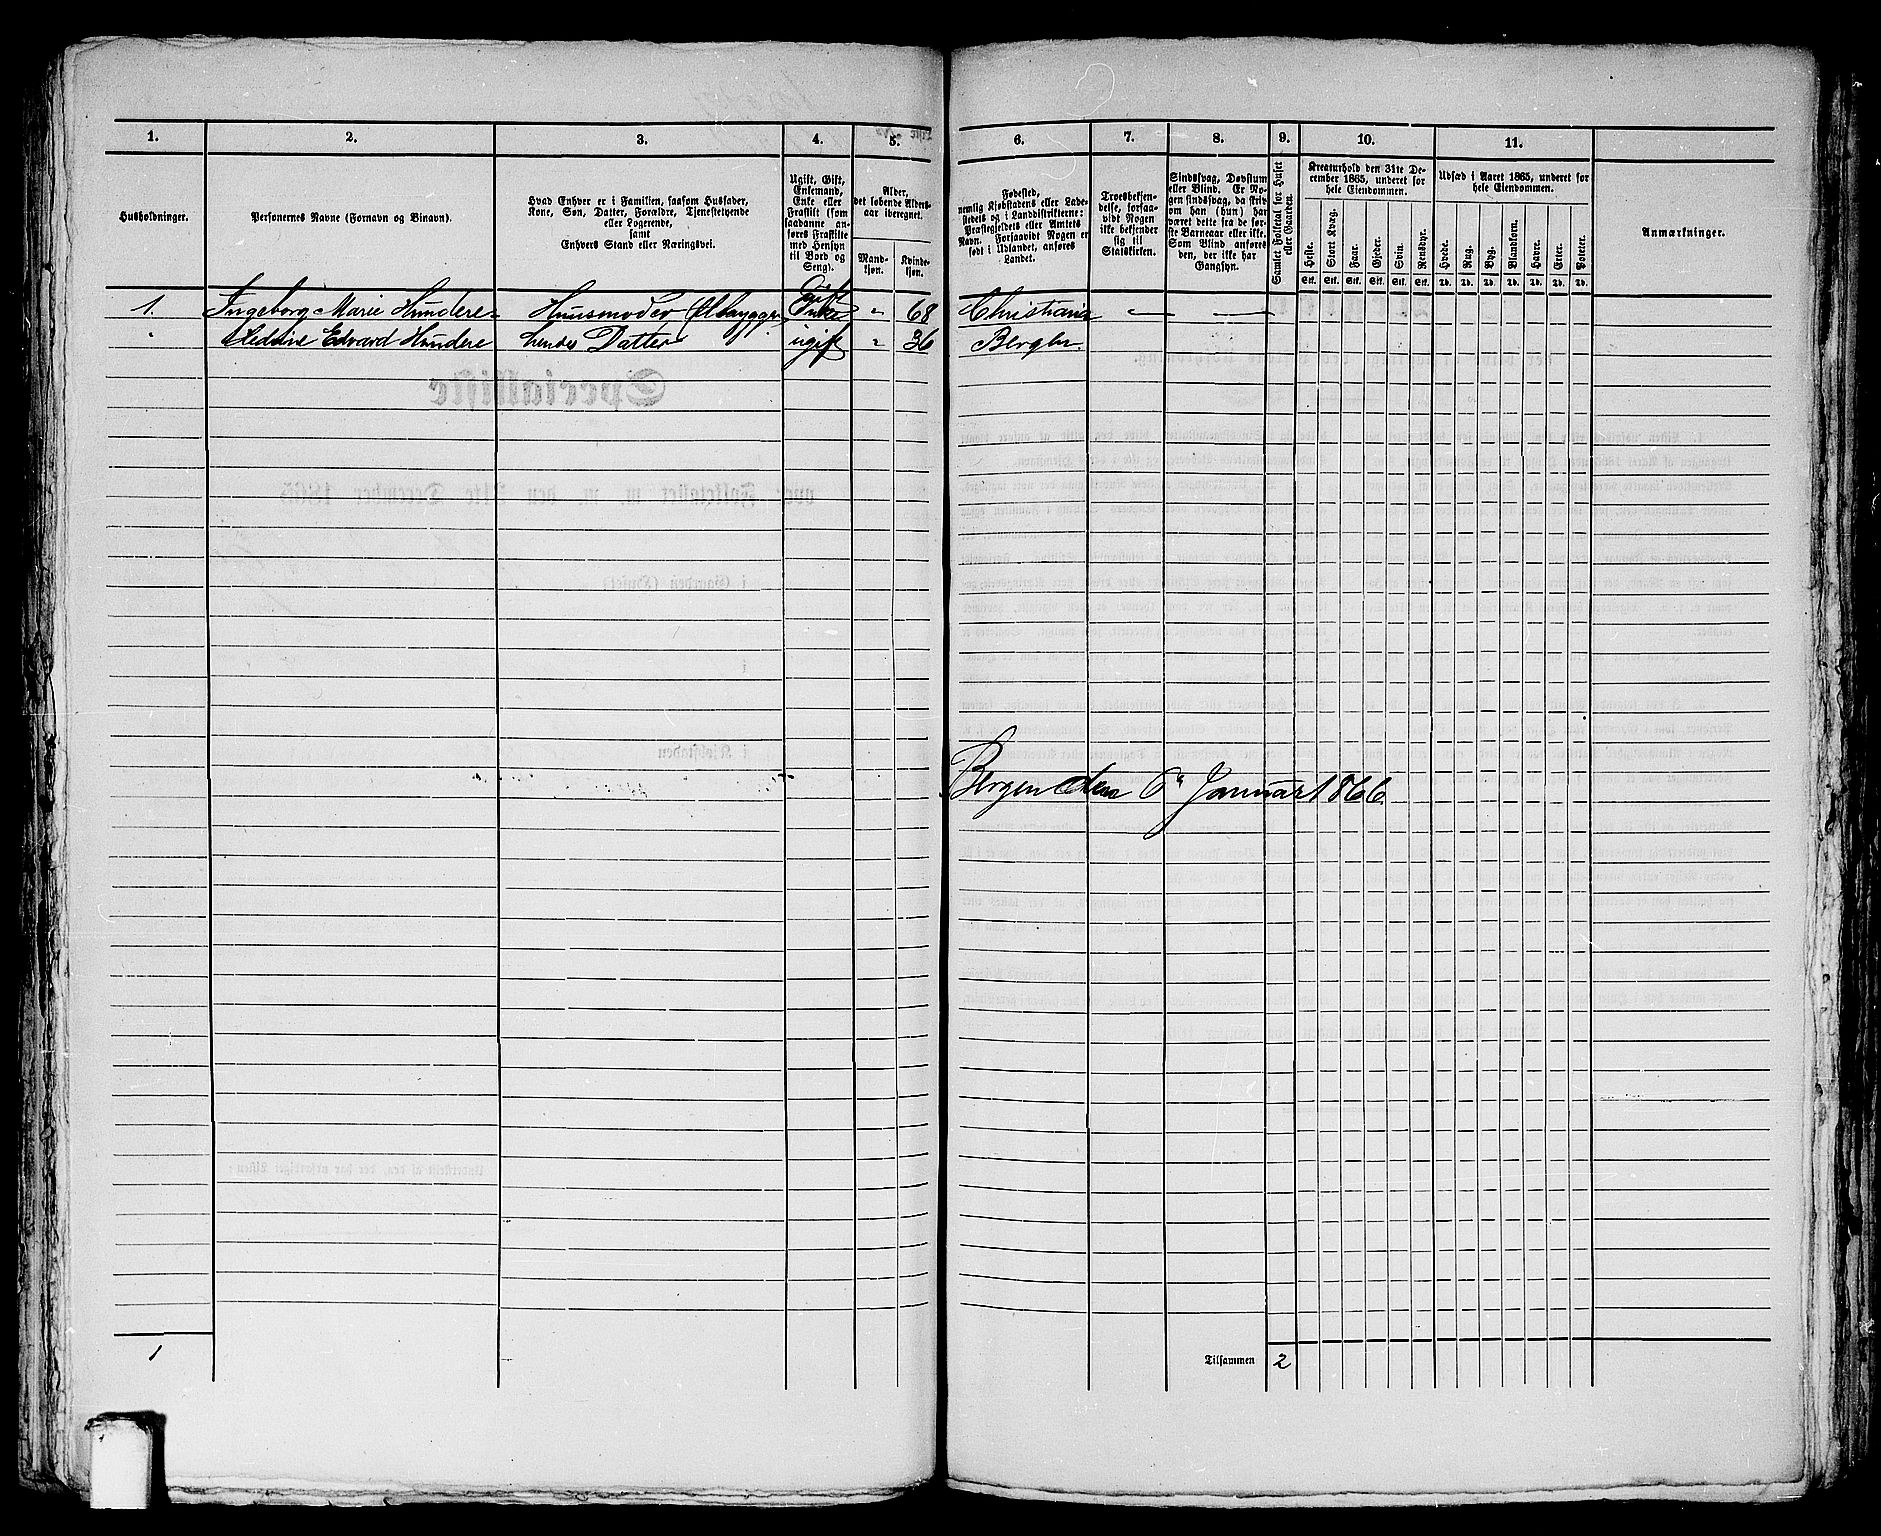 1. 2. 3. 4. 5. 6. 7. 8. 9. 10. 11.
Husholdninger.
Personernes Navne (Fornavn og Binavn).
Hvad Enhver er i Familien, saasom Husfader,
Kone, Søn, Datter, Forældre, Tjenestetyende
eller Logerende,
samt
Enhvers Stand eller Næringsvei.
Ugift, Gift,
Enkemand,
Enke eller
Fraskilt (som
saadanne an-
føres Fraskilte
med Hensyn
til Bord og
Seng).
Alder,
det løbende Alders-
aar iberegnet.
Mand-
kjøn.
Kvinde-
kjøn.
Fødested,
nemlig Kjøbstadens eller Lade-
stedets og i Landdistrikterne:
Præstegjeldets eller Amtets
Navn. Forsaavidt Nogen er
født i Udlandet, anføres
Landet.
Troesbekjen-
delse, forsaa-
vidt Nogen
ikke bekjender
sig til
Statskirken.
Sindssvag, Døvstum
eller Blind. Er No-
gen sindssvag, da skriv
om han (hun) har
været dette fra de før-
ste Barneaar eller ikke.
Som Blind anføres
den, der ikke har
Gangsyn.
Samlet Folketal for Huset
eller Gaarden.
Kreaturhold den 31te De-
cember 1865, underet for
hele Eiendommen.
Heste. Stort Kvæg. Faar. Gjeder. Svin. Rensdyr.
Stk. Stk. Stk. Stk. Stk. Stk.
Udsæd i Aaret 1865, underet for
hele Eiendommen.
Hvede. Rug. Byg. Blandkorn. Havre. Erter. Poteter.
Td. Td. Td. Td. Td. Td. Td.
Anmærkninger.
1. Ingeborg Marie Hundere Huusmoder Ølbrygger Enke " 68 Christiania — —
" Edvard Hundere hendes Datter ugift " 36 Bergen
Bergen den 6te Januar 1866
1 Tilsammen 2